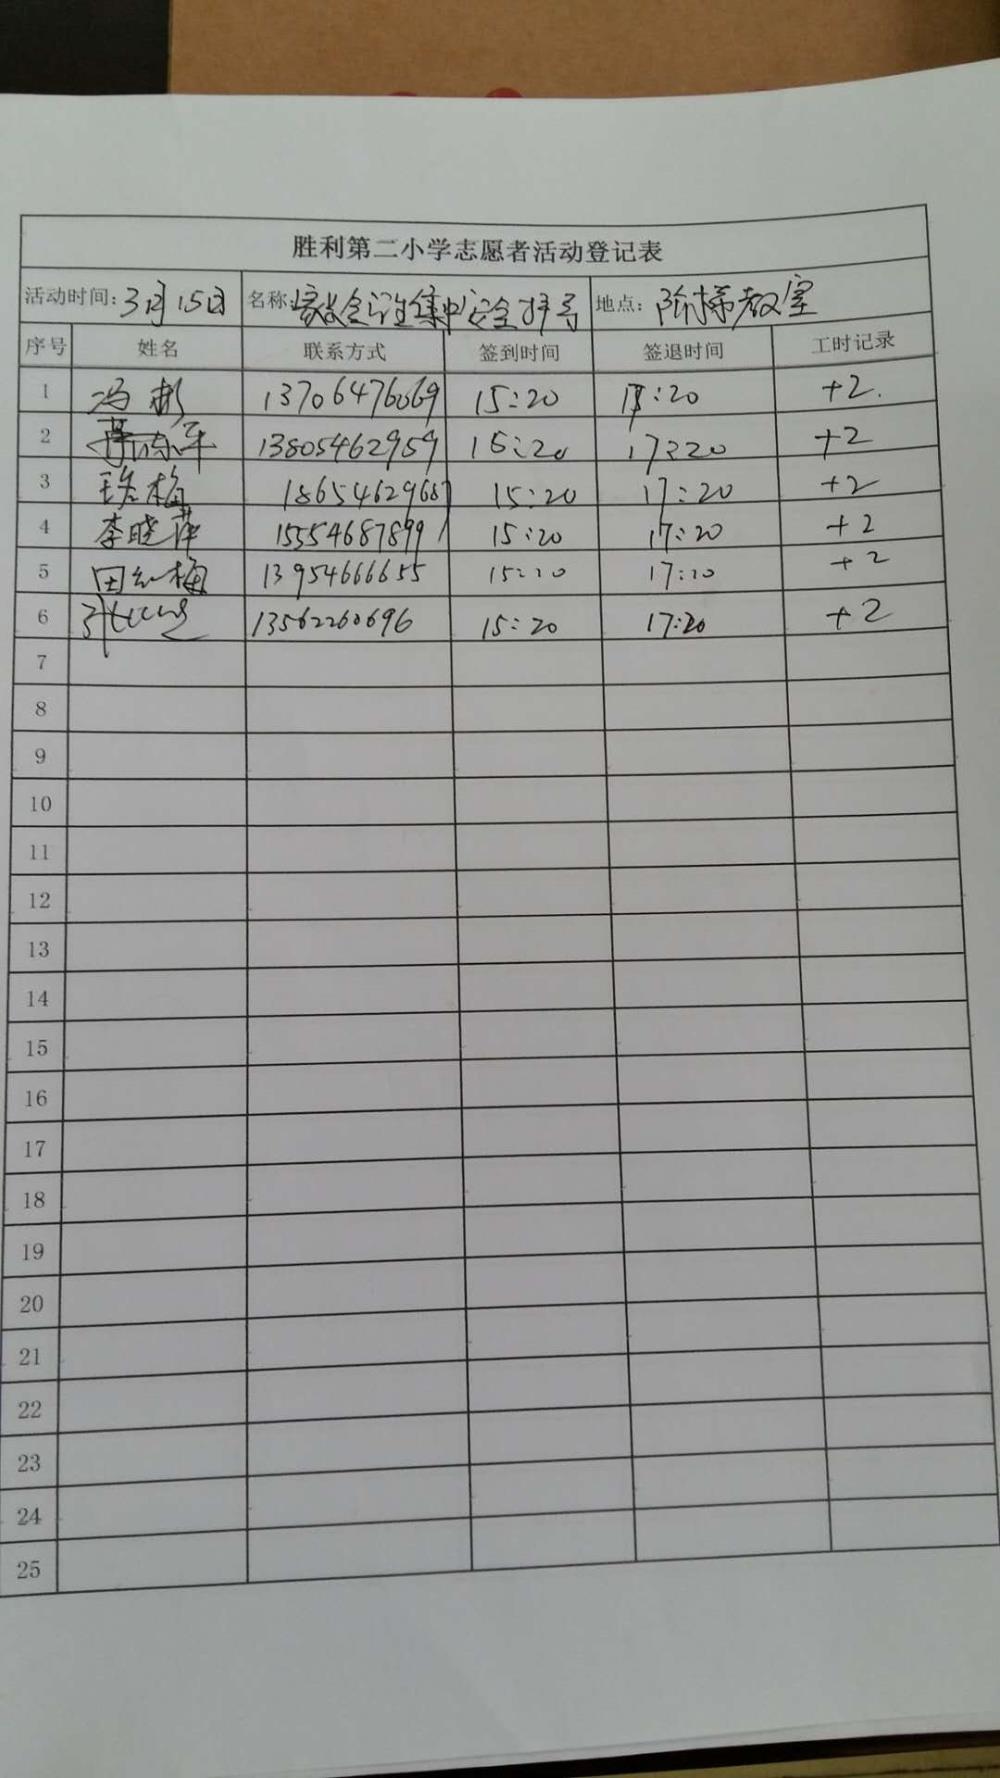 胜利第二小学志愿者活动登记表
活动时间：3月15日 名称： 集中安全 地点：阶梯教室
序号 姓名 联系方式 签到时间 签退时间 工时记录
1 冯彬 13706476069 15:20 17:20 +2.
2 13805462959 15:20 17:20 +2
3 梅 1865462968 15:20 17:20 +2
4 李晓萍 15554687899 15:20 17:20 +2
5 田红梅 13954666655 15:20 17:20 +2
6 13562260696 15:20 17:20 +2
7
8
9
10
11
12
13
14
15
16
17
18
19
20
21
22
23
24
25